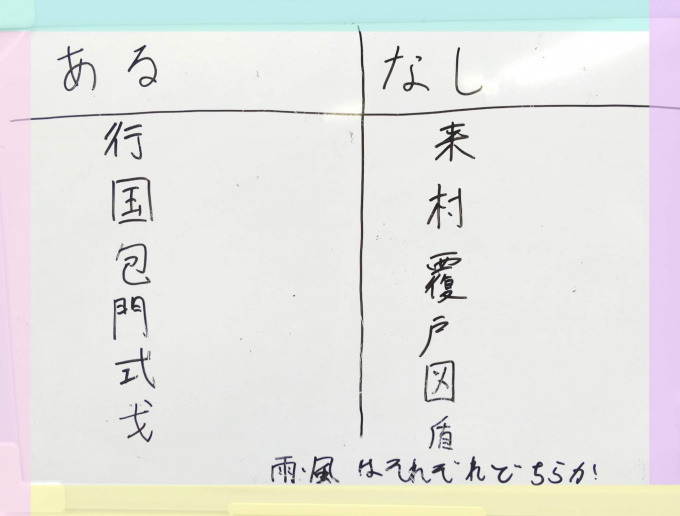 ある なし
行 来
国 村
包 覆
門 戸
式 図
戈 盾
雨・風 はそれぞれどちらか!